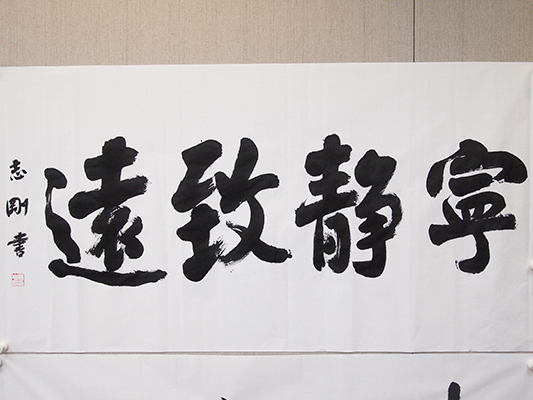 寧靜致遠
志剛書